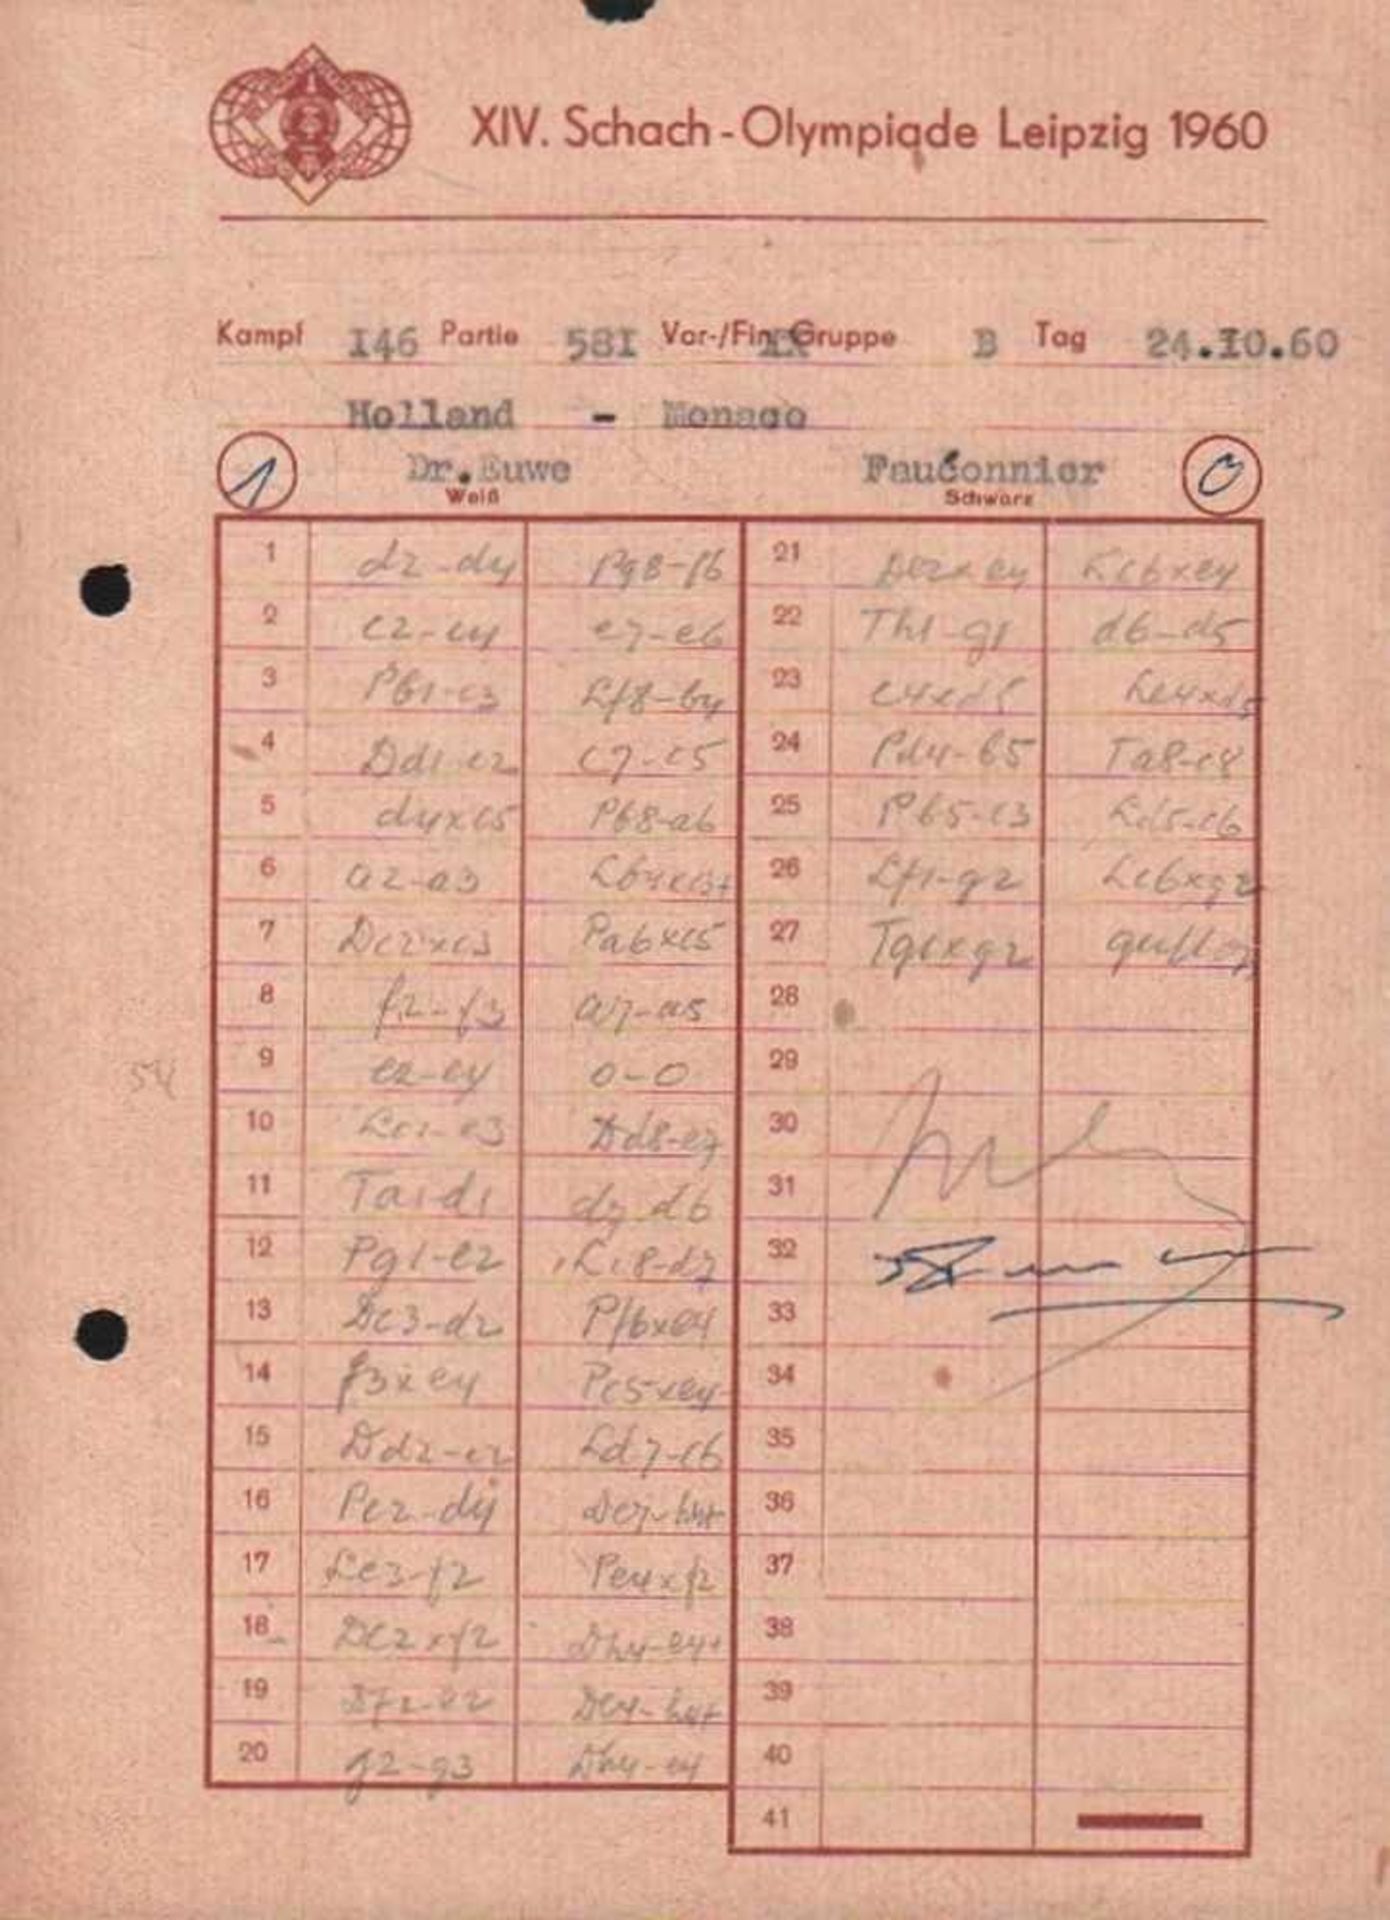 XIV. Schach-Olympiade Leipzig 1960
Kampf I46 Partie 58I Vor-/Fin. Gruppe B Tag 24.I0.60
Holland - Monaco
1 Dr.Euwe Fauconnier 0
Weiß Schwarz
1 d2-d4 Pg8-f6
2 c2-c4 e7-e6
3 Pb1-c3 Lf8-b4
4 Dd1-c2 c7-c5
5 d4xc5 Pb8-a6
6 a2-a3 Lb4xc3+
7 Dc2xc3 Pa6xc5
8 f2-f3 a7-a5
9 e2-e4 0-0
10 Lc1-e3 Dd8-e7
11 Ta1-d1 d7-d6
12 Pg1-e2 Lc8-d7
13 Dc3-d2 Pf6xe4
14 f3xe4 Pc5xe4
15 Dd2-c2 Ld7-c6
16 Pe2-d4 De7-h4+
17 Le3-f2 Pe4xf2
18 Dc2xf2 Dh4-e4+
19 Df2-e2 De4-h4+
20 g2-g3 Dh4-e4
21 De2xe4 Lc6xe4
22 Th1-g1 d6-d5
23 c4xd5 Le4xd5
24 Pd4-b5 Ta8-c8
25 Pb5-c3 Ld5-c6
26 Lf1-g2 Lc6xg2
27 Tg1xg2
28
29
30
31
32
33
34
35
36
37
38
39
40
41